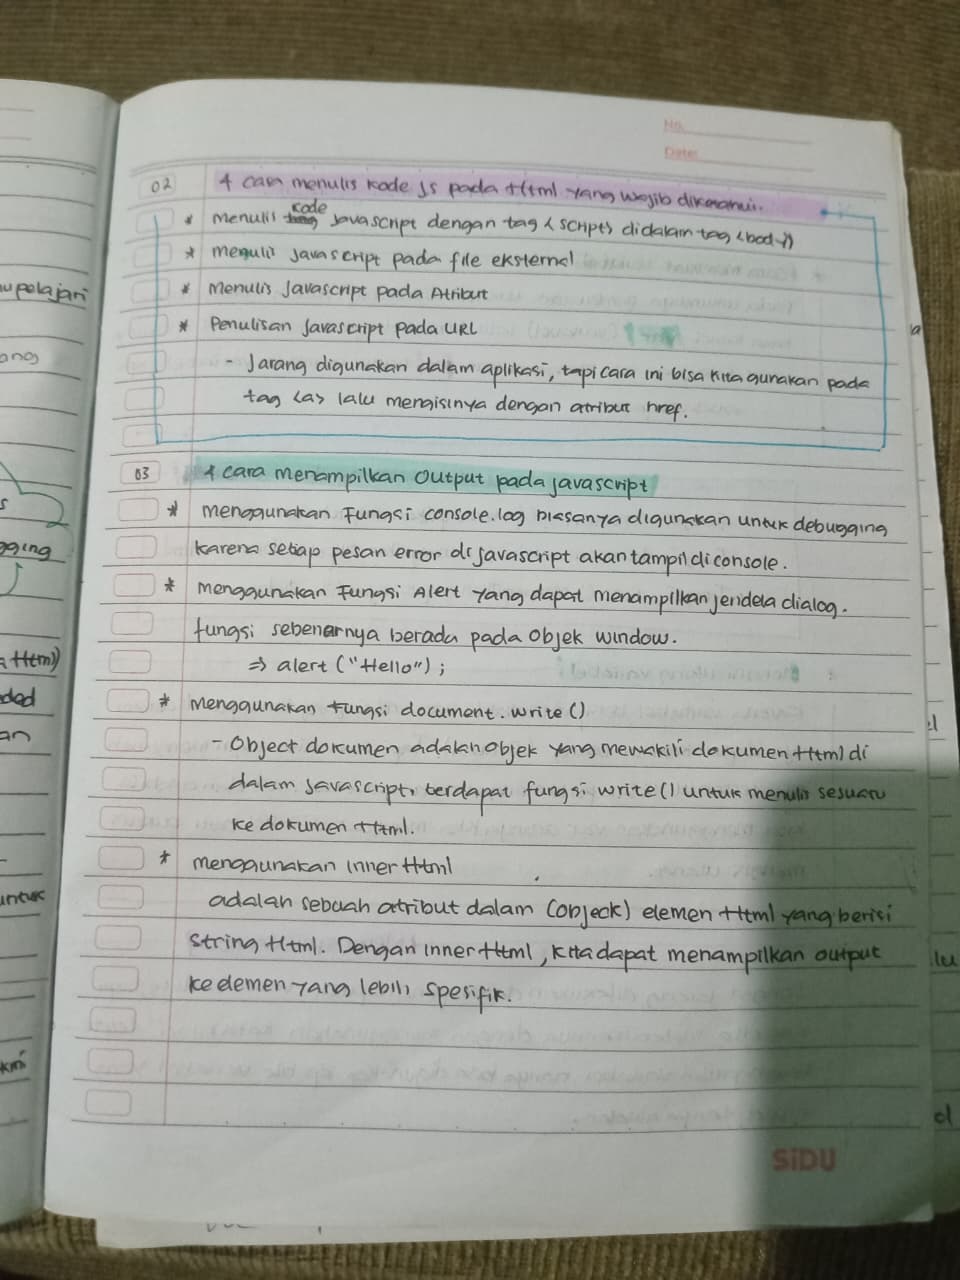 No.
Date:
02 4 cara menulis kode js pada Html yang wajib diketahui.
* menulis code javascript dengan tag <script> didalam tag <body>
* menulis javascript pada file eksternal
* menulis Javascript pada Atribut
* Penulisan javascript pada URL
- Jarang digunakan dalam aplikasi, tapi cara ini bisa kita gunakan pada
tag <a> lalu mengisinya dengan atribut href.
03 4 cara menampilkan Output pada javascript
* menggunakan Fungsi console.log biasanya digunakan untuk debugging
karena setiap pesan error di javascript akan tampil di console.
* menggunakan Fungsi Alert yang dapat menampilkan jendela dialog.
fungsi sebenarnya berada pada Objek window.
=> alert ("Hello");
* menggunakan fungsi document.write()
- Object dokumen adalah objek yang mewakili dokumen Html di
dalam Javascript, terdapat fungsi write() untuk menulis sesuatu
ke dokumen Html.
* menggunakan inner Html
adalah sebuah atribut dalam (objeck) elemen Html yang berisi
string Html. Dengan inner Html, kita dapat menampilkan output
ke elemen yang lebih spesifik.
SiDU